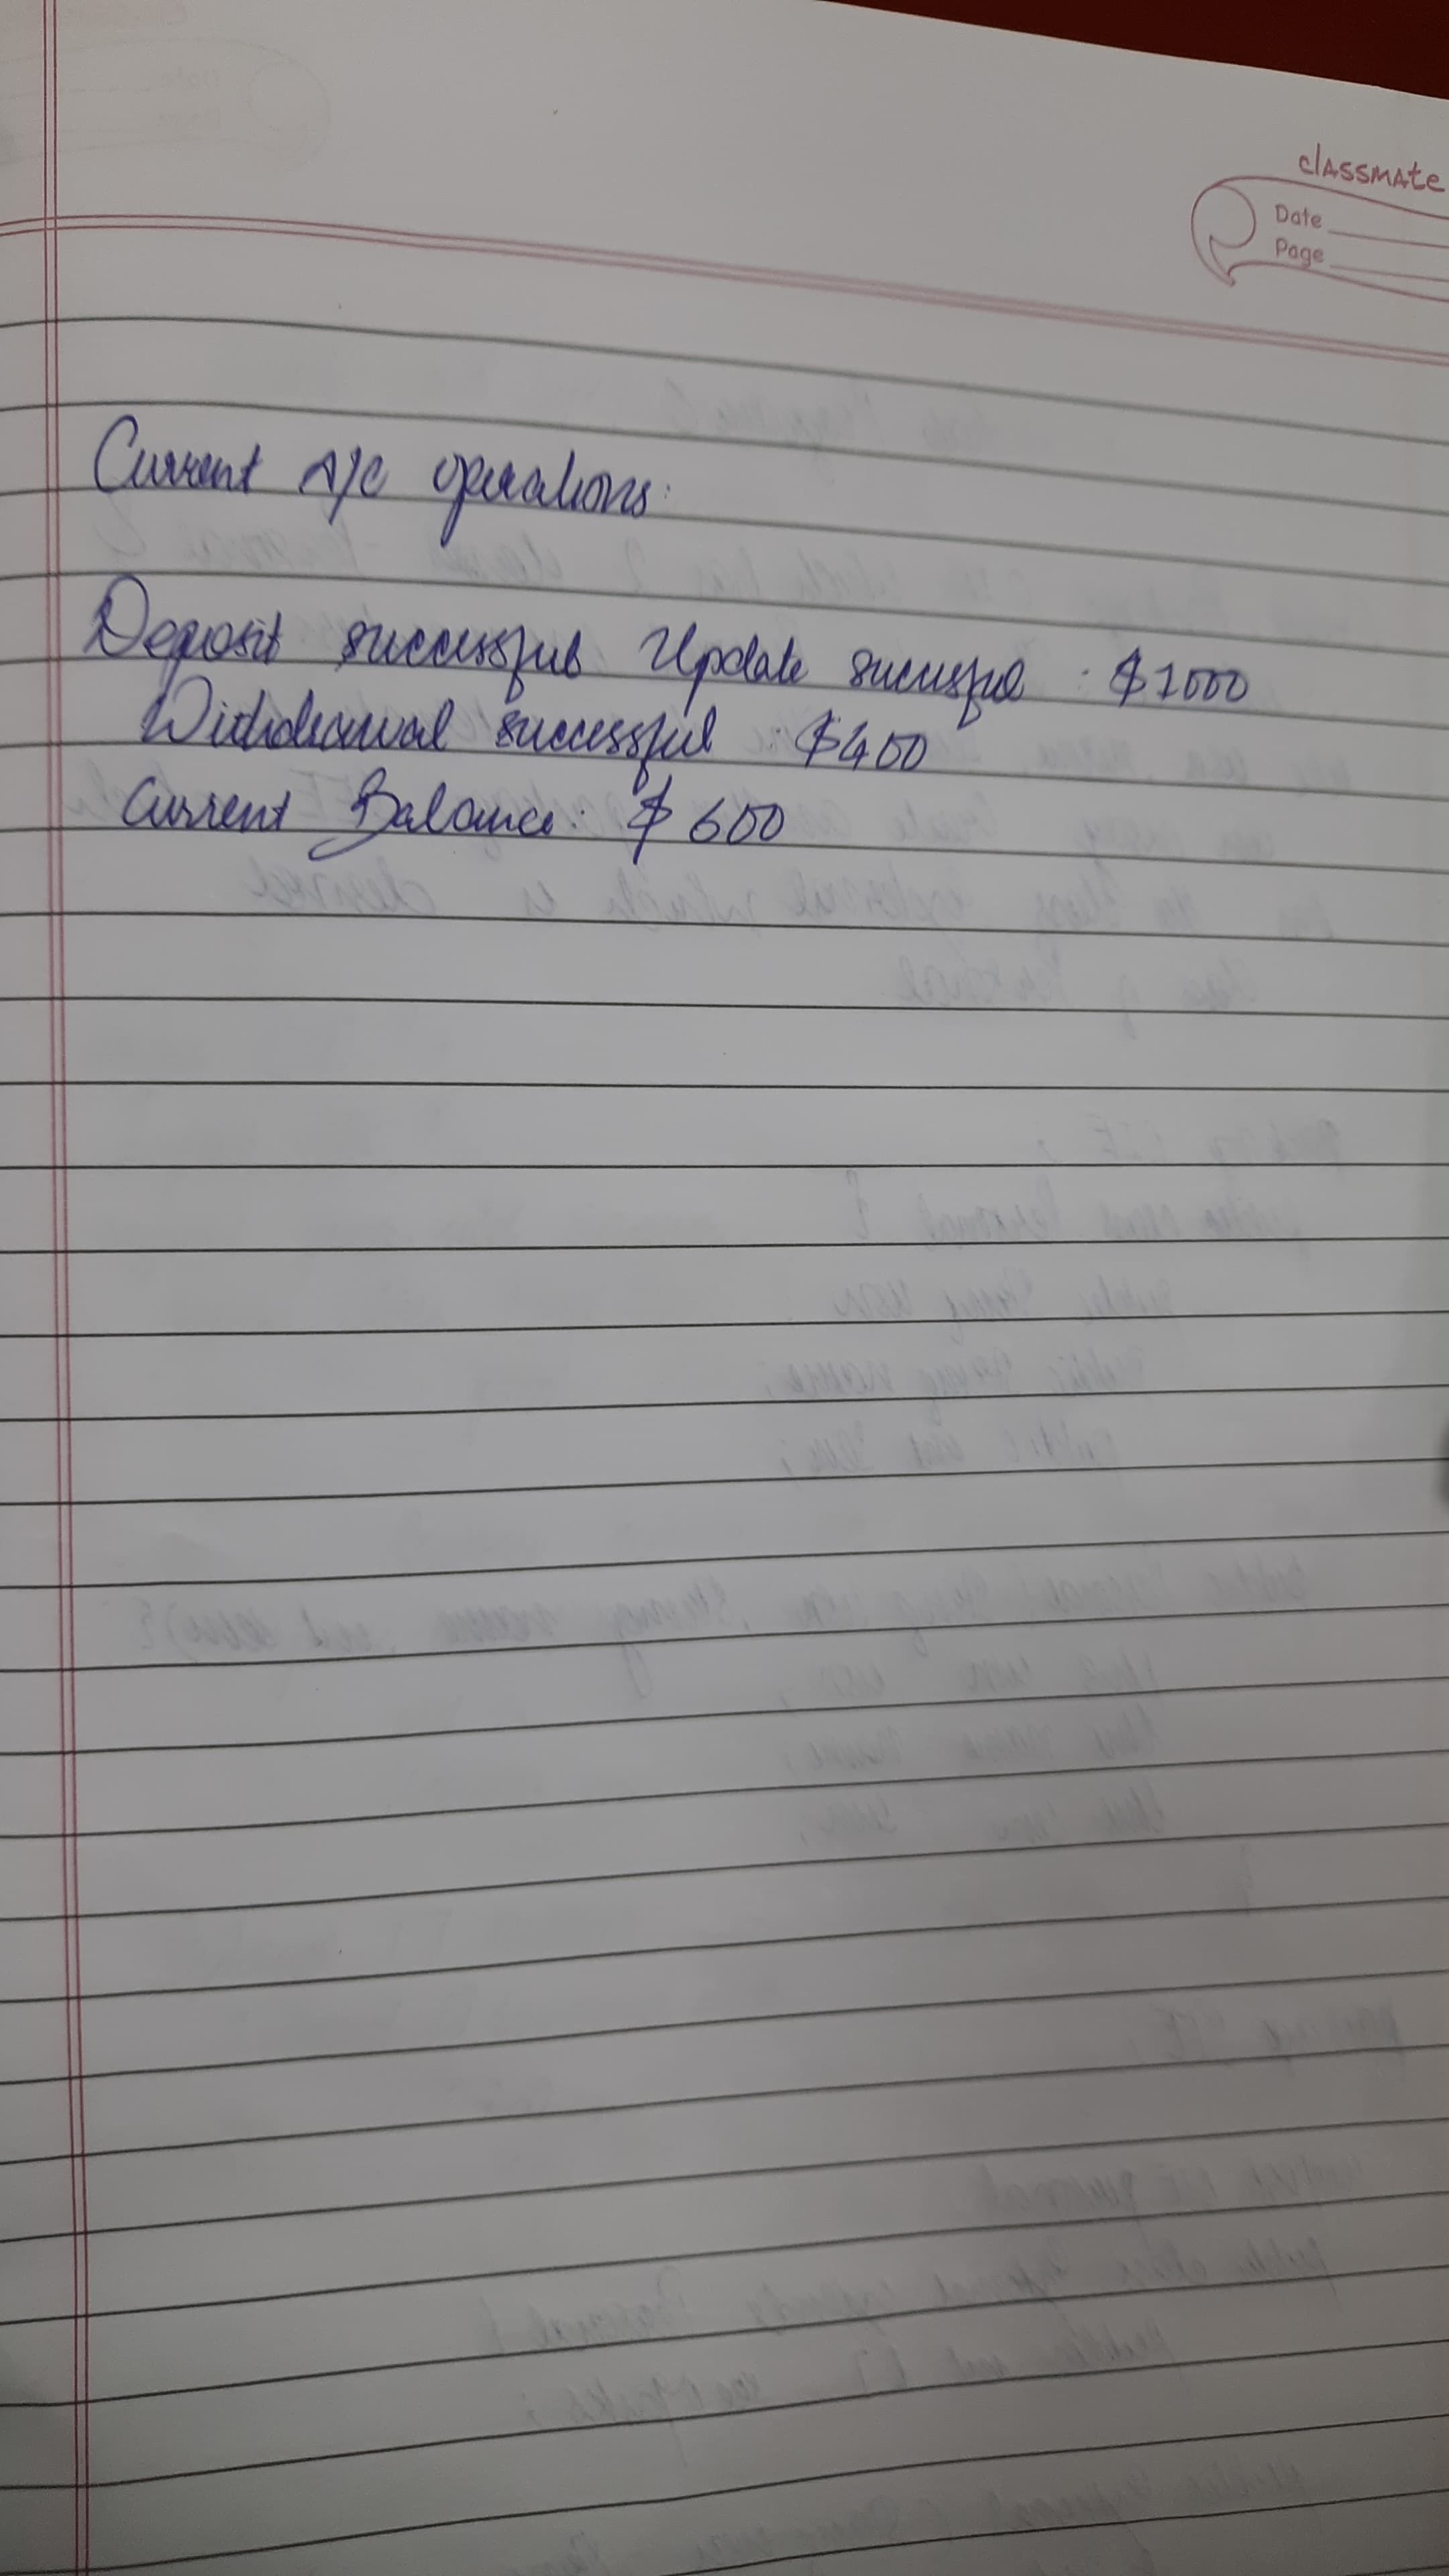 classmate
Date
Page
Current A/c operations:
Deposit successful Update sucussful : $1000
Withdrawal successful : $400
Current Balance: $600